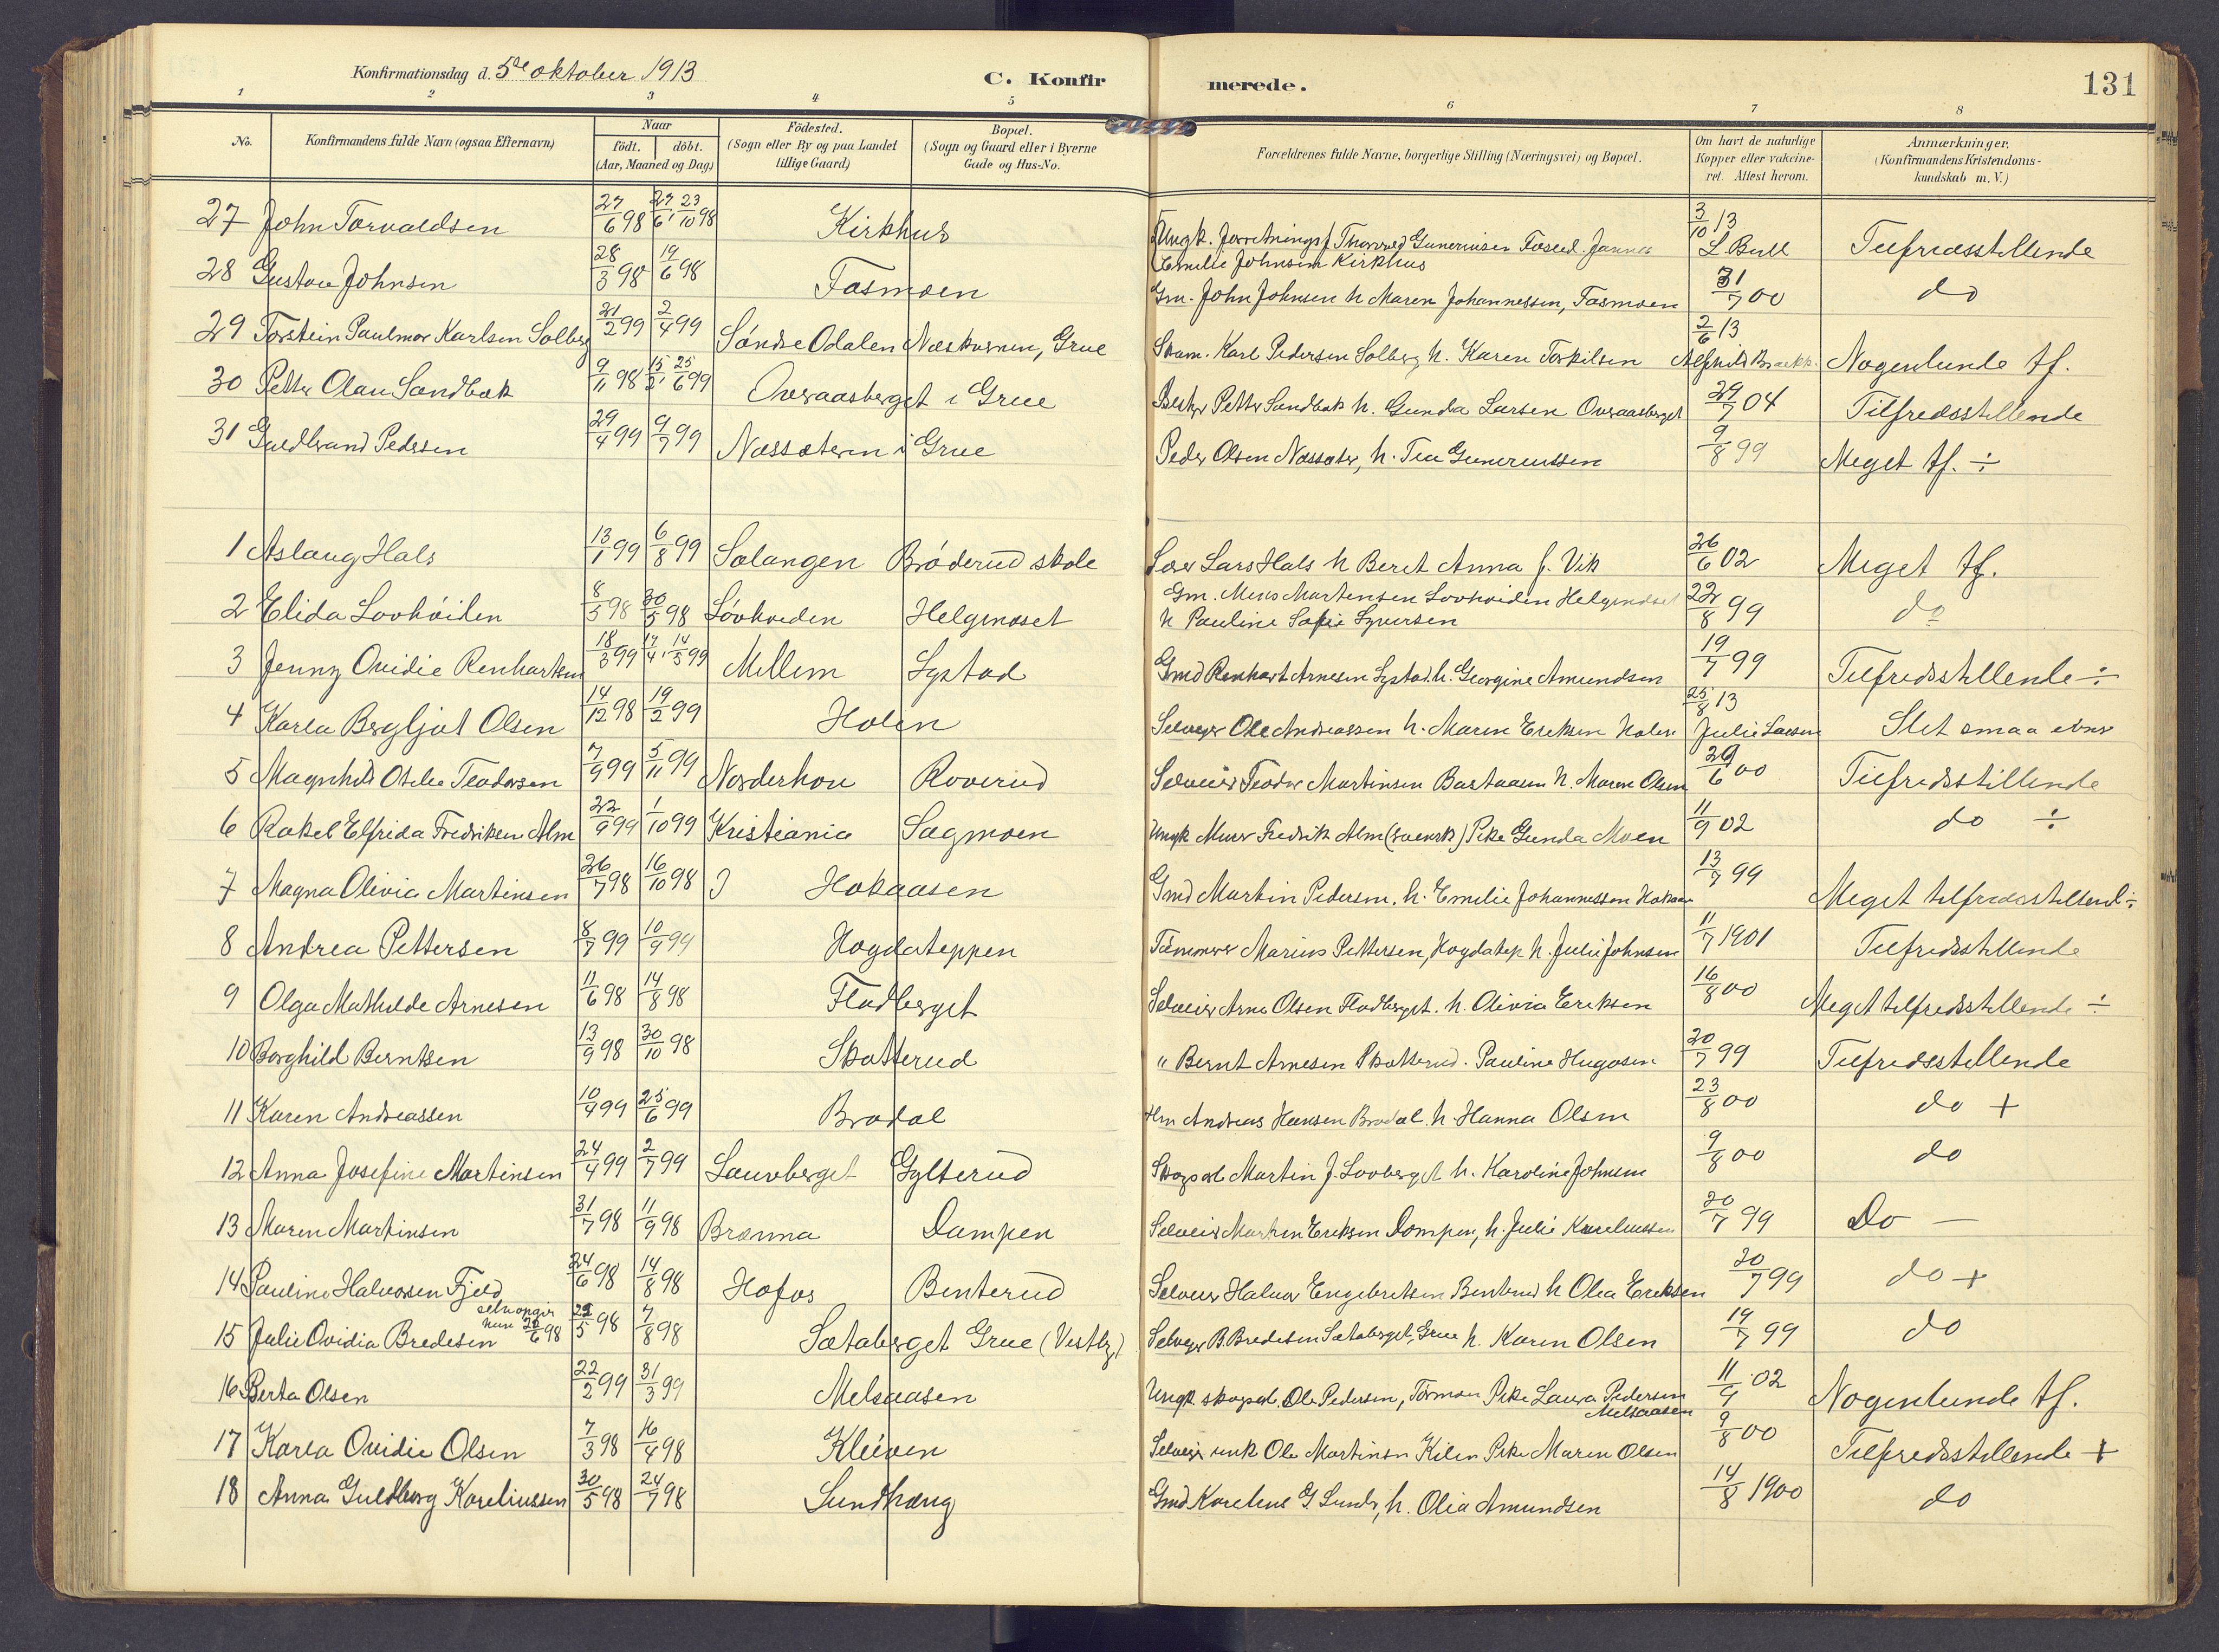 Konfirmationsdag d. 5de oktober 1913 C. Konfirmerede. 131
1 2 3 4 5 6 7 8
No. Konfirmandens fulde Navn (ogsaa Efternavn) Naar födt. döbt. (Aar, Maaned og Dag) Födested. (Sogn eller By og paa Landet tillige Gaard) Bopæl. (Sogn og Gaard eller i Byerne Gade og Hus-No. Forældrenes fulde Navne, borgerlige Stilling (Næringsvei) og Bopæl. Om havt de naturlige Kopper eller vakcineret. Attest herom. Anmærkninger. (Konfirmandens Kristendomskundskab m. V.)
27 John Torvaldsen 27/6 98 27/6, 23/10 98 Kirkhus Ungk. Thorvald Guneriusen Emilie Johnsen Kirkhus 3/10 13 L. Bull Tilfredsstillende
28 Gustav Johnsen 28/3 98 19/6 98 Tasmoen Gm. John Johnsen h Maren Johannessen, Tasmoen 31/7 00 do
29 Torstein Paulmar Karlsen Solberg 21/2 99 2/4 99 Søndre Odalen Grue Karl Pedersen Solberg h. Karen Torkilsen 2/6 13 Nogenlunde tf.
30 Petter Olau Sandbæk 9/11 98 15/2, 25/6 99 Overaasberget i Grue Petter Sandbæk h. Gunda Larsen Overaasberget 29/7 04 Tilfredsstillende
31 Guldbrand Pedersen 29/4 99 9/7 99 Næssæteren i Grue Peder Olsen Næssæter, h. Tea Gunerussen 9/8 99 Meget tf. ÷
1 Aslaug Hals 13/1 99 6/8 99 Salangen Brøderud skole Lærer Lars Hals h Beret Anna f. Vik 26/6 02 Meget tf.
2 Elida Lovhøiden 8/5 98 30/5 98 Løvhøiden Helgenæset Gm. Martensen Lovhøiden h Pauline Sofie Syversen 22/8 99 do
3 Jenny Ovidie Renhartsen 18/3 99 17/4, 14/5 99 Mellem Systad Gmd Renhart Arnesen Systad. h. Georgine Amundsen 19/7 99 Tilfredsstillende ÷
4 Karla Bergljot Olsen 14/12 98 19/2 99 Holen Selveyer Ole Andreassen h. Maren Eriksen Holen 25/8 13 Julie Larsen Slet smaa evner
5 Magnhild Otelie Teodorsen 7/9 99 5/11 99 Norderhov Roverud Selveier Teodor Martinsen Bastaasen h. Maren Olsen 29/6 00 Tilfredsstillende
6 Rakel Elfrida Fredriksen Alm 22/9 99 1/10 99 Kristiania Sagmoen Ungk Murer Fredrik Alm (svensk) Pike Gunda Moen 11/9 02 do ÷
7 Magna Olivia Martinsen 26/7 98 16/10 98 Hokaasen Gmd Martin Pedersen. h. Emilie Johannessen Hokaas 13/7 99 Meget tilfredsstillend ÷
8 Andrea Pettersen 8/7 99 10/9 99 Hogdateppen Tømmerm Marius Pettersen, Hogdatep h. Julie Johnsen 11/7 1901 Tilfredsstillende
9 Olga Mathilde Arnesen 11/6 98 14/8 98 Fladberget Selveier Arne Olsen Fladberget. h. Olivia Eriksen 16/8 00 Meget tilfredsstillende ÷
10 Borghild Berntsen 13/9 98 30/10 98 Skotterud " Bernt Arnesen Skotterud. Pauline Hugosen 20/7 99 Tilfredsstillende
11 Karen Andreassen 10/4 99 25/6 99 Bradal Hm Andreas Hansen Bradal. h. Hanna Olsen 23/8 00 do +
12 Anna Josefine Martinsen 24/4 99 2/7 99 Lauvberget Gylterud Skogsarb Martin J. Lovberget h. Karoline Johnsen 9/8 00 do
13 Maren Martinsen 31/7 98 11/9 98 Brænna Dampen Selveier Martin Eriksen Dampen, h. Julie Kareliussen 20/7 99 Do —
14 Pauline Halvorsen Fjeld 24/6 98 14/8 98 Hofos Benterud Selveier Halvor Engebretsen Benterud h Olea Eriksen 20/7 99 do +
15 Julie Ovidia Bredesen selv opgir 26/6 98 29/5 98 7/8 98 Sætaberget Grue (Vestby) Selveyer B. Bredesen Sætaberget, Grue h. Karen Olsen 19/7 99 do
16 Berta Olsen 22/2 99 31/3 99 Melsaasen Ungk. skogsarb. Ole Pedersen, Pike Laura Pedersen Melsaasen 11/9 02 Nogenlunde tf.
17 Karla Ovidie Olsen 7/3 98 16/4 98 Kleiven Selveier enk Ole Martinsen Kilen Pike Maren Olsen 9/8 00 Tilfredsstillende +
18 Anna Guldborg Kareliussen 30/5 98 24/7 98 Sundhaug Gmd Karelius G Sund, h. Olia Amundsen 14/8 1900 do